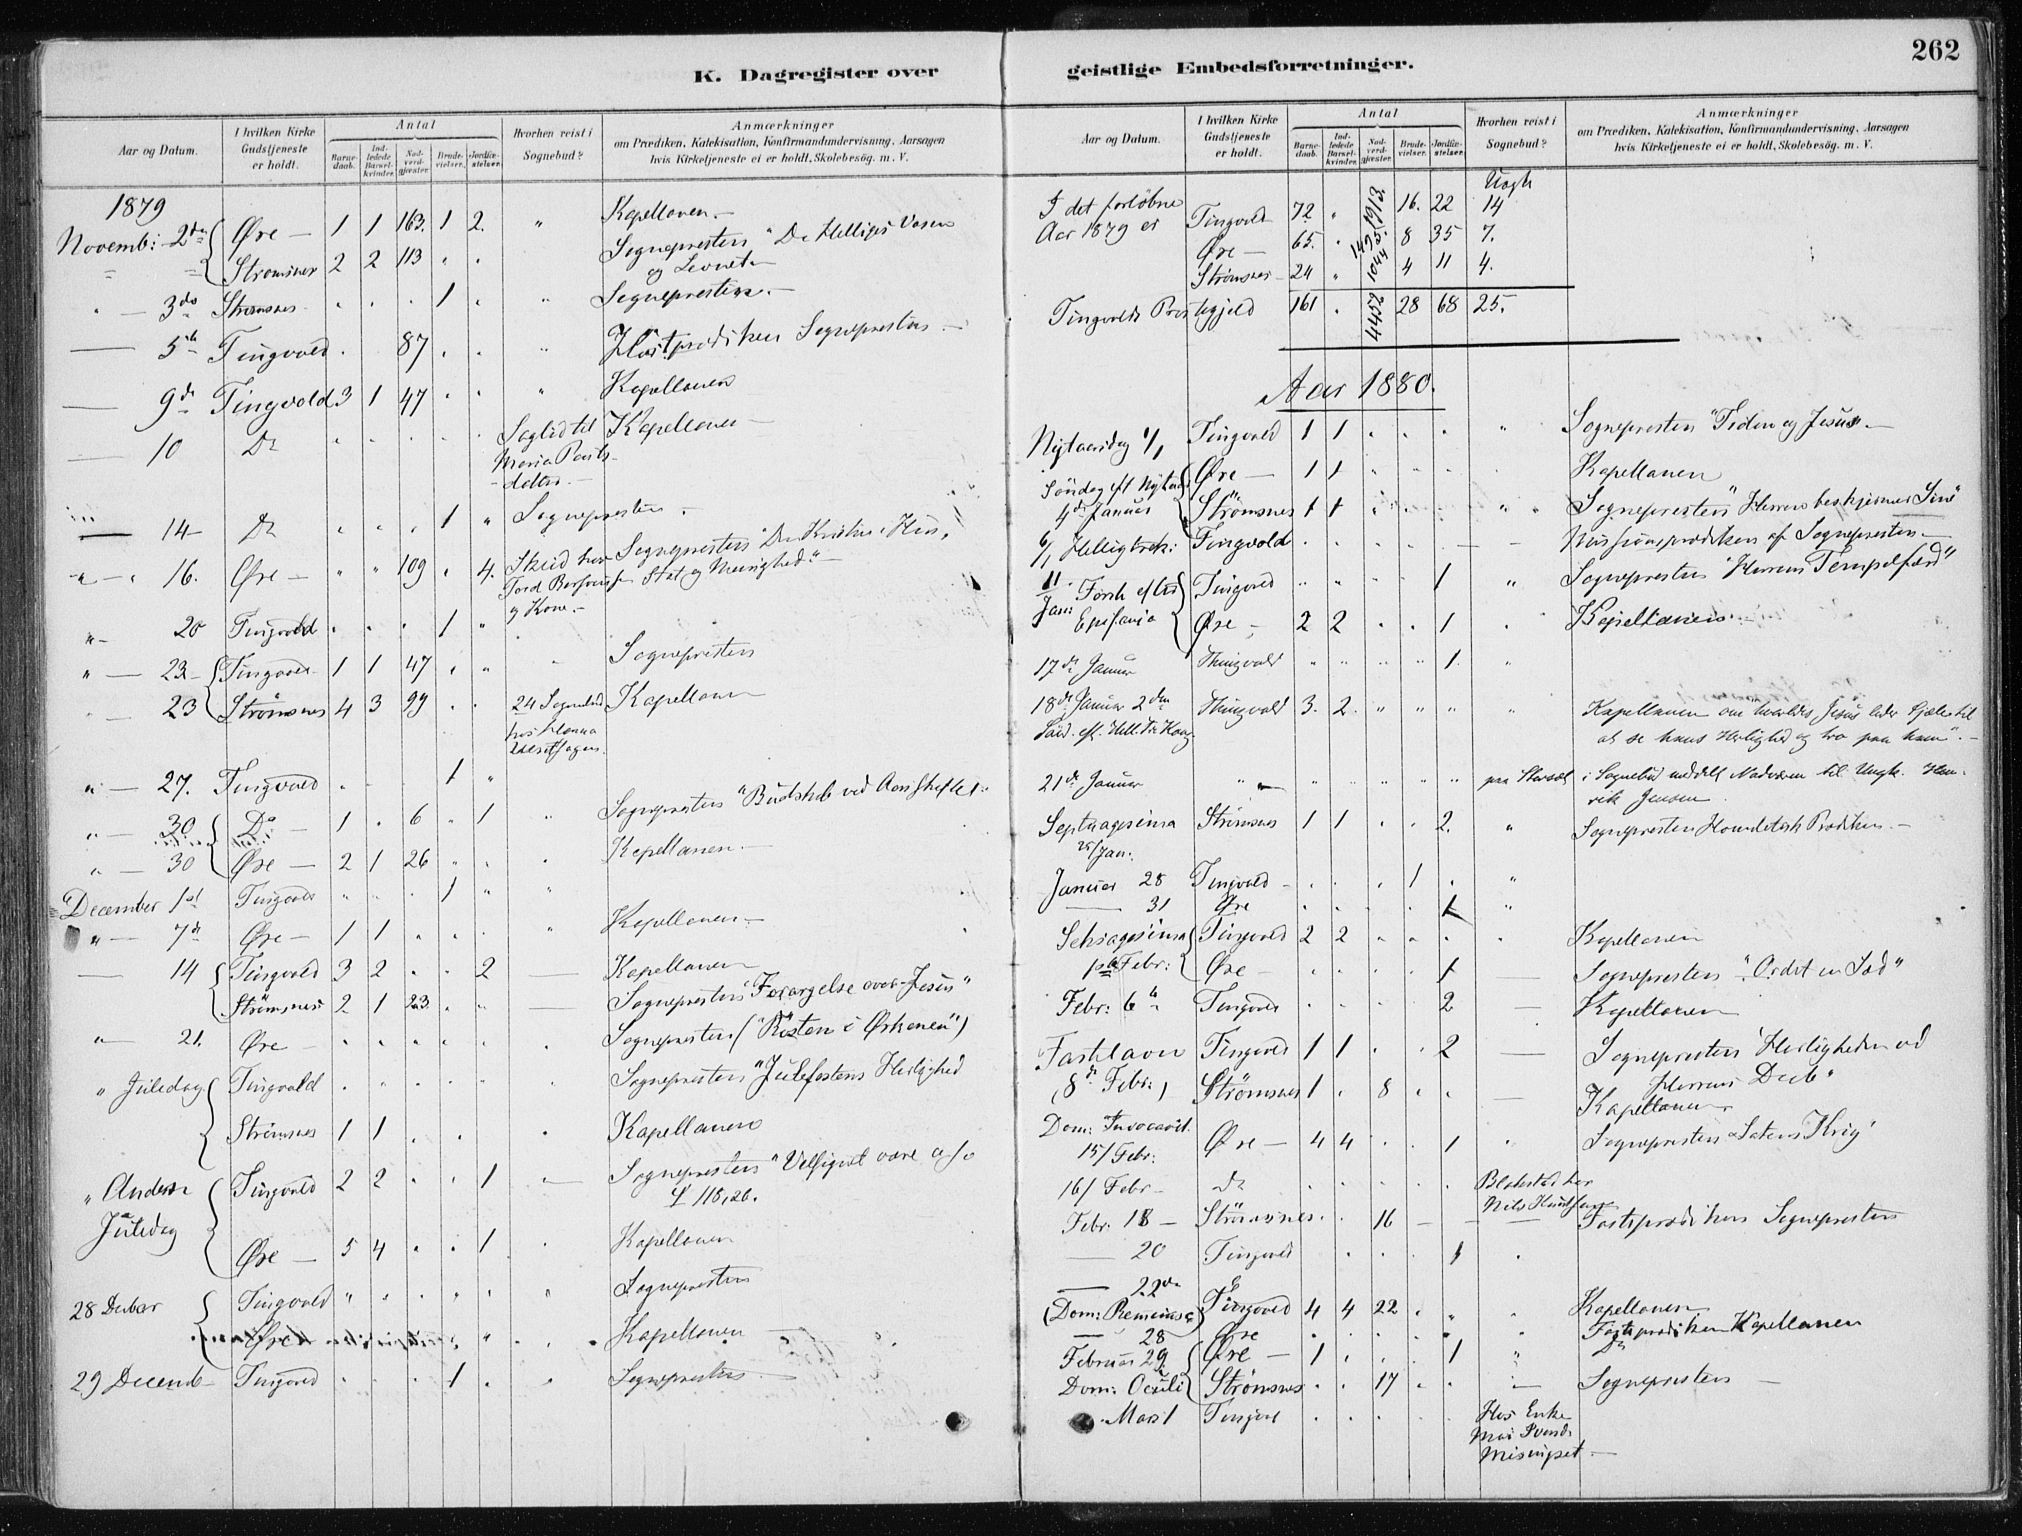 262
K. Dagregister over geistlige Embedsforretninger.
Aar og Datum. I hvilken Kirke Gudstjeneste er holdt. Antal Barnedaab. Indledede Barselkvinder. Nadverdgjæster. Brudevielser. Jordfæstelser. Hvorhen reist i Sognebud? Anmærkninger om Prædiken, Katekisation, Konfirmandundervisning, Aarsagen hvis Kirketjeneste ei er holdt, Skolebesög. m. V.
1879
Novemb: 2den Øre — 1 1 163. 1 2. " Kapellanen.—
" Strømsnes 2 2 113 " " Sognepresten "De Helliges Væsen
og Levnet—
" — 3die Strømsnes . . . 1 . " Sognepresten.—
— 5te Tingvold . 87 . . " Høstprædiken Sognepresten —
— 9de Tingvold 3 1 47 . . " Kapellanen
— 10 Do . . . . . Kapellanen —
Maria
datter.—
— 14 — Do " " . 1 " Sognepresten.
" — " 16. Øre — " " 109 " 4. hos Sognepresten "De Kristnes Hus,
Tord Stat og Menighed."—
og Kone.—
" — 20 Tingvold . . . 1 "
" — 23 — Tingvold 1 1 47 . " " Sognepresten
" — 23 Strømsnes 4 3 99 . . 24 Sognebud Kapellanen
hos
" — 27. Tingvold . . 1 "
" — 30 Do — 1 . 6 . 1 " Sognepresten "Budskab ved Aarsskiftet"
" — 30 Øre — 2 1 26 . . . Kapellanen.—
December 1st Tingvold " " . 1 " "
" — 7de Øre — 1 1 . . . " Kapellanen.—
— 14 Tingvold 3 2 . . 2 — Kapellanen
Strømsnes 2 1 23. . " — Sognepresten "Forargelse over Jesus"
" — 21. Øre — . . . . . . Sognepresten ("Røsten i Ørkenen")
" Juledag Tingvold . . . . . . Sognepresten "Julefestens Herlighed
Strømsnes 1 1 . . . Kapellanen
" Anden Tingvold 2 2 . . 1 — Sognepresten "Velsignet være
Juledag 118,26.
Øre — 5 4 . . 1 . Kapellanen
28 Decbar Tingvold " " . " " " Sognepresten
Øre " . . Kapellanen —
29 Decemb— Tingvold . . . 1 . " Sognepresten —
Aar og Datum. I hvilken Kirke Gudstjeneste er holdt. Antal Barnedaab. Indledede Barselkvinder. Nadverdgjæster. Brudevielser. Jordfæstelser. Hvorhen reist i Sognebud? Anmærkninger om Prædiken, Katekisation, Konfirmandundervisning, Aarsagen hvis Kirketjeneste ei er holdt, Skolebesög. m. V.
I det forløbne Tingvold 72 " 1913. 16. 22 14
Aar 1879 er Øre — 65. . 1495. 8 35 7.
Strømsnes — 24 " 1044 4 11 4.
Tingvolds Prestegjeld 161 . 4452 28 68 25.
Aar 1880.
Nytaarsdag 1/1 Tingvold 1 1 . . . " Sognepresten "Tiden og Jesus.—
Søndag eft Nytaar Øre — 1 1 " . . . Kapellanen
4de Januar Strømsnes 1 1 . . . " " Sognepresten "Herren beskjermer Sine"
6/1 Helligtrek: Tingvold . . . . — — Missionsprædiken af Sognepresten —
11 Jan: Første efter Tingvold " " . . 1 " Sognepresten "Herrens Tempelfærd"
Epifania Øre — 2 2 . . 1 . Kapellanen.—
17de Januar Thingvold " " " " 1. "
18de Januar 2den Thingvold 3. 2. " " " " Kapellanen om hvorledes Jesus leder Sjæle til
Sønd. eft. Hell. Tre Kong at se hans Herlighed og tro paa ham".—
21de Januar " " " " " " paa i Sognebud meddelt Nadveren til Ungk. Hen-
rik Jensen.
Septuagesima Strømsnes 1 1 . . 2. " Sognepresten Homiletisk Prædiken.—
25/Jan:
Januar 28 Tingvold — . . . 1 . "
— 31 Øre . . . . 1 "
Sexagesima Tingvold 2 2 " " . " Kapellanen
1ste Febr: Øre — . . . . 1 Sognepresten "Ordet en Sæd"
Febr: 6te Tingvold . . . . 2 — Kapellanen
Fastelavn Tingvold 1 1 . . 2 — Sognepresten "Herligheden ved
(8de Febr:) Herrens Daab"
Strømsnes 1 . 8 . . — Kapellanen.
Dom: Invocavit Øre — 4 4 . . 1 " Sognepresten
15/Febr:
16/Febr — Do . . . . . hos
Nils
Febr: 18 — Strømsnes. . 16 — — — Fasteprædiken Sognepresten
— 20 Tingvold . . . . 1 .
— 22de
(Dom: Reminisc) Tingvold 4 4 22 . " " Kapellanen
— 28 Øre . . . . . " Fasteprædiken Kapellanen
Februar 29. Øre — 1 . . . 1 " Do
Dom: Oculi Strømsnes . . 17 . . — Sognepresten —
" Mars 1 Tingvold . . . . . Hos Enke